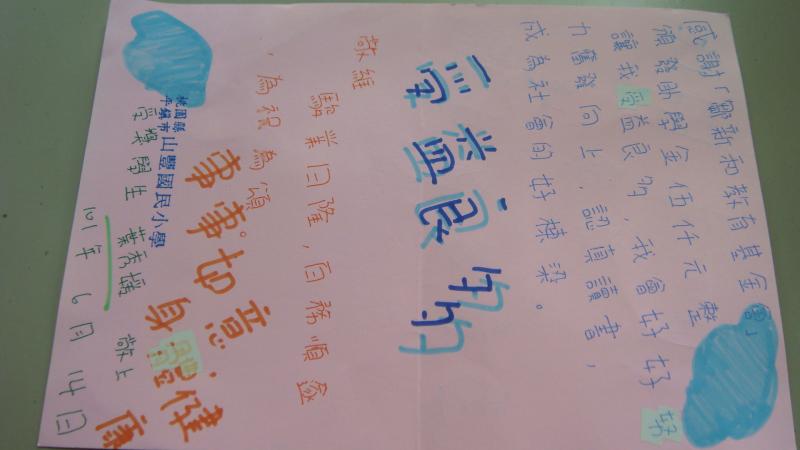 感謝「鄒新和教育基金會」
頒發助學金伍仟元整
讓我受益良多，我會好好努
力奮發向上，認真讀書，
成為社會的好棟梁。
受益良多
敬維
駿業日隆，百務順遂
，為祝為頌
事事如意
身體健康
桃園縣平鎮市山豐國民小學
受獎學生 葉秀 敬上
101年6月14日